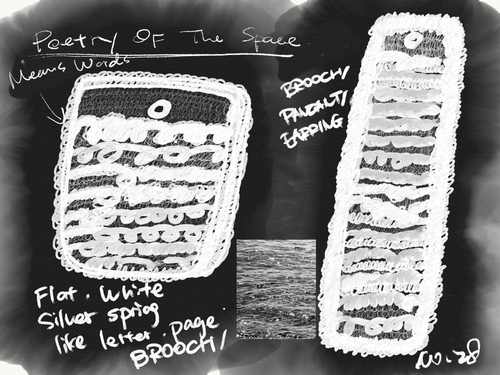 Poetry Of The Space
Means Words
BROOCH/
PANDALT/
EARRING
Flat. White
Silver spring
like letter. page.
BROOCH/